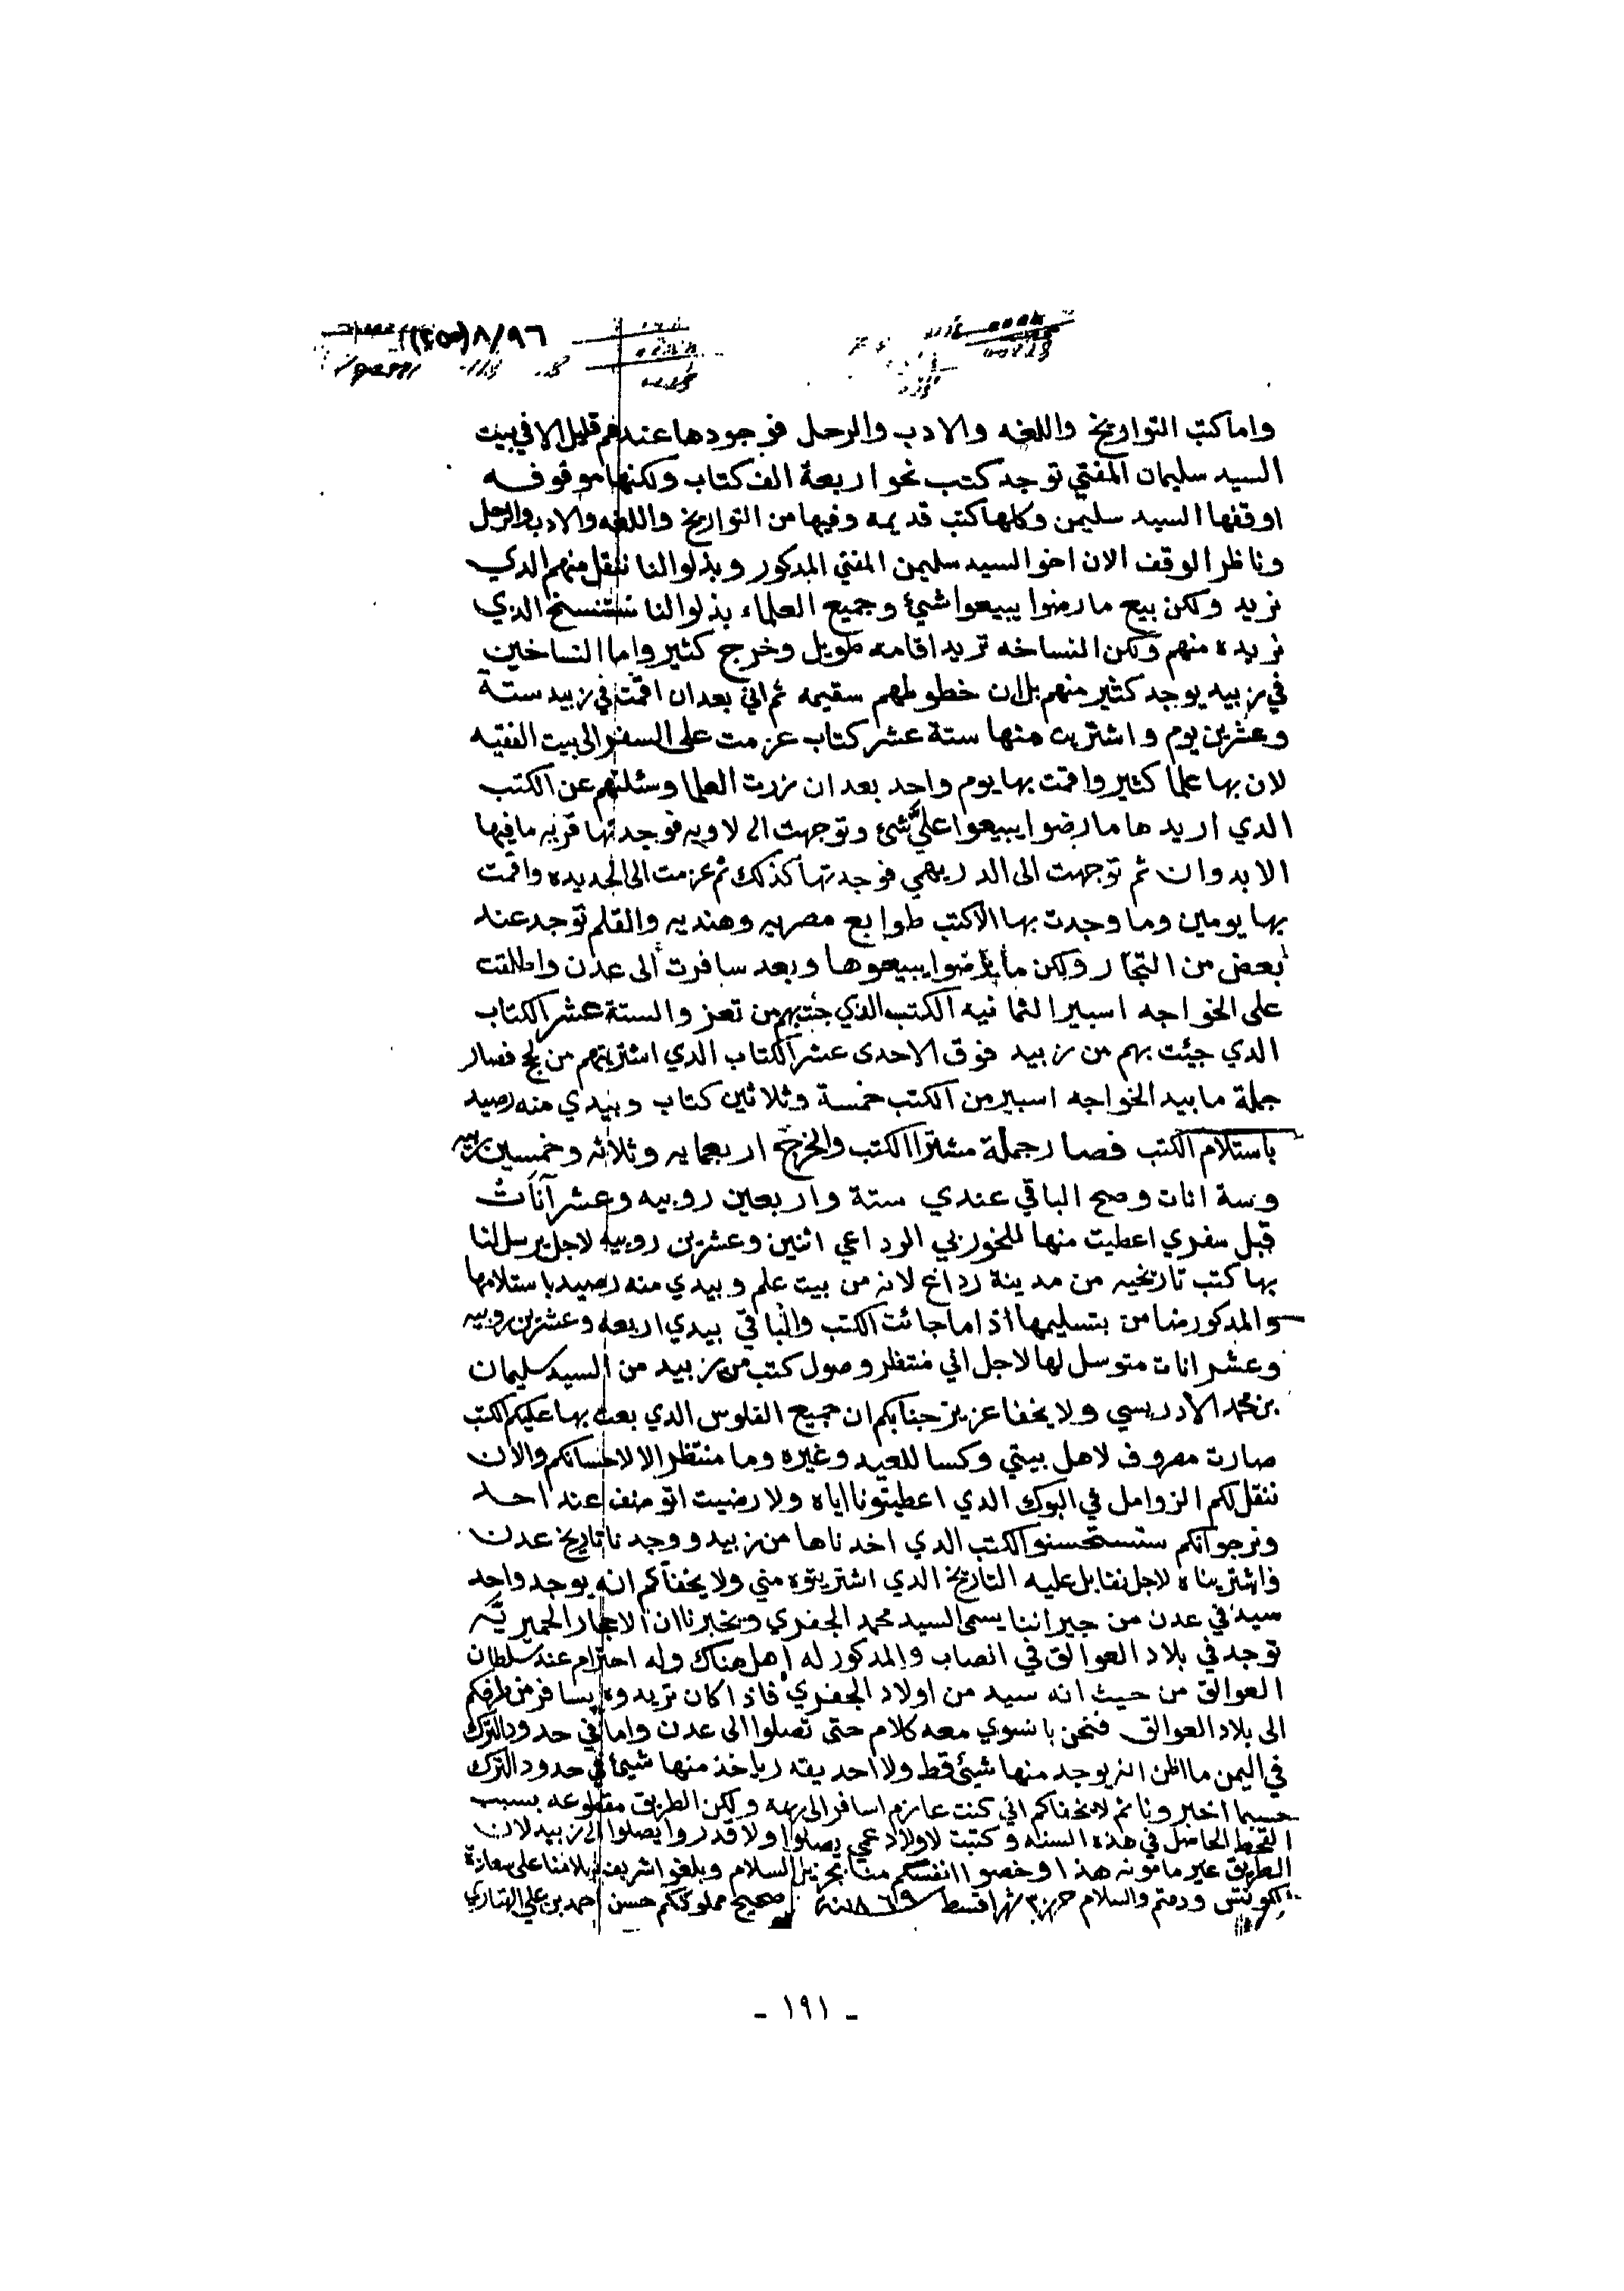 ٨/٩٦ (٢٥٥)
واما كتب التواريخ واللغه والادب والرحل فوجودها عندهم قليل الا في بيت
السيد سليمان المفتي توجد كتب نحو اربعة الف كتاب ولكنها موقوفه
اوقفها السيد سليمن وكلها كتب قديمه وفيها من التواريخ واللغه والادب والرحل
وناظر الوقف الان اخو السيد سليمن المفتي المدكور وبذلوا لنا ننقل منهم الدي
نريد ولكن بيع ما رضوا يبيعوا شيئ وجميع العلماء بذلوا لنا نستنسخ الدي
نريده منهم ولكن النساخه تريد اقامه طويل وخرج كثير واما النساخين
في زبيد يوجد كثير منهم بل ان خطوطهم سقيمه ثم اني بعد ان اقمت في زبيد ستة
وعشرين يوم واشتريت منها ستة عشر كتاب عزمت على السفر الى بيت الفقيه
لان بها علما كثير واقمت بها يوم واحد بعد ان زرت العلما وسئلتهم عن الكتب
الدي اريدها ما رضوا يبيعوا عليّ شئ وتوجهت الى لاويه فوجدتها قريه ما فيها
الا بدوان ثم توجهت الى الدريهمي فوجدتها كذلك ثم عزمت الى الحديده واقمت
بها يومين وما وجدت بها الا كتب طوابع مصريه وهنديه والقلم توجد عند
بعض من التجار ولكن ما يرضوا يبيعوها وبعد سافرت الى عدن واطلقت
على الخواجه اسبير الثمانيه الكتب الذي جئت بهم من تعز والستة عشر الكتاب
الدي جيئت بهم من زبيد فوق الاحدى عشر الكتاب الدي اشتريتهم من لحج فصار
جملة ما بيد الخواجه اسبير من الكتب خمسة وثلاثين كتاب وبيدي منه رصيد
باستلام الكتب فصار جملة مشترا الكتب والخرج اربعمايه وثلاثه وخمسين ربيه
وستة انات وصح الباقي عندي ستة واربعين روبيه وعشر آنات
قبل سفري اعطيت منها للخوربي الرداعي اثنين وعشرين روبيه لاجل يرسل لنا
بها كتب تاريخيه من مدينة رداع لانه من بيت علم وبيدي منه رصيد باستلامها
والمدكور ضامن بتسليمها اذا ما جائت الكتب والباقي بيدي اربعه وعشرين روبيه
وعشر انات متوسل لها لاجل اني منتظر وصول كتب من زبيد من السيد سليمان
بن محمد الادريسي ولا يخفا عزيز جنابكم ان جميع الفلوس الدي بعت بها عليكم الكتب
صارت مصروف لاهل بيتي وكسا للعيد وغيره وما منتظر الا لاحسانكم والان
ننقل لكم الزوامل في البوك الدي اعطيتونا اياه ولا رضيت اتوضف عند احد
ونرجو انكم ستستحسنو الكتب الدي اخدناها من زبيد ووجدنا تاريخ عدن
فاشتريناه لاجل نقابل عليه التاريخ الدي اشتريتوه مني ولا يخفاكم انه يوجد واحد
سيد في عدن من جيراننا يسمى السيد محمد الجفري ويخبرنا ان الاحجار الحميريّه
توجد في بلاد العوالق في انصاب والمدكور له اهل هناك وله احترام عند سلطان
العوالق من حيث انه سيد من اولاد الجفري فاذا كان تريدوه يسافر من طرفكم
الى بلاد العوالق فنحن بانسوي معه كلام حتى تصلوا الى عدن واما في حدود الترك
في اليمن ما اظن انه يوجد منها شيئ قط ولا احد يقدر ياخذ منها شيئا في حدود الترك
حسبما اخبرونا ثم لا يخفاكم اني كنت عازم اسافر الى ريمة ولكن الطريق مقطوعه بسبب
القحط الحاصل في هذه السنه وكتبت لاولاد عمي يصلوا ولا قدروا يصلوا الى زبيد لان
الطريق غير مامونه هذا وخصوا انفسكم منا بجزيل السلام وبلغوا شريف سلامنا على سعادة
الكونتس ودمتم والسلام حرر ٣٠ شهر اقسط سنة ١٨٩٦ صحيح مملوككم حسن احمد بن علي التهاري
- ١٩١ -